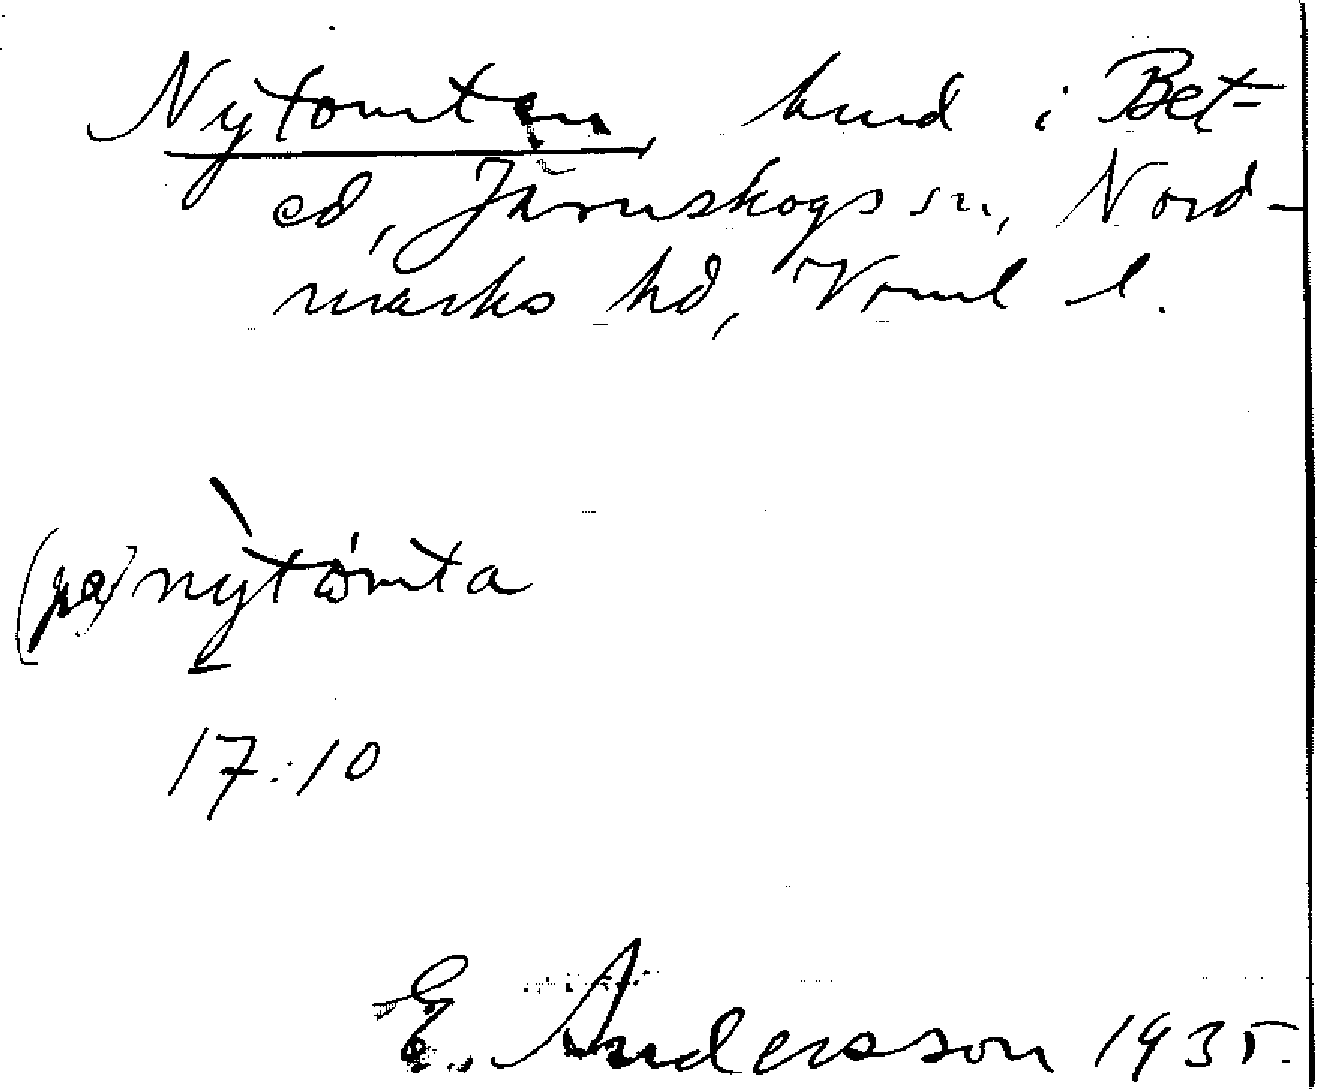 Nytomten, hmd i Bet-
ed, Järnskogs sn, Nord-
marks hd, Vrml l.
(på) nỳtómta
17:10
E. Andersson 1935.